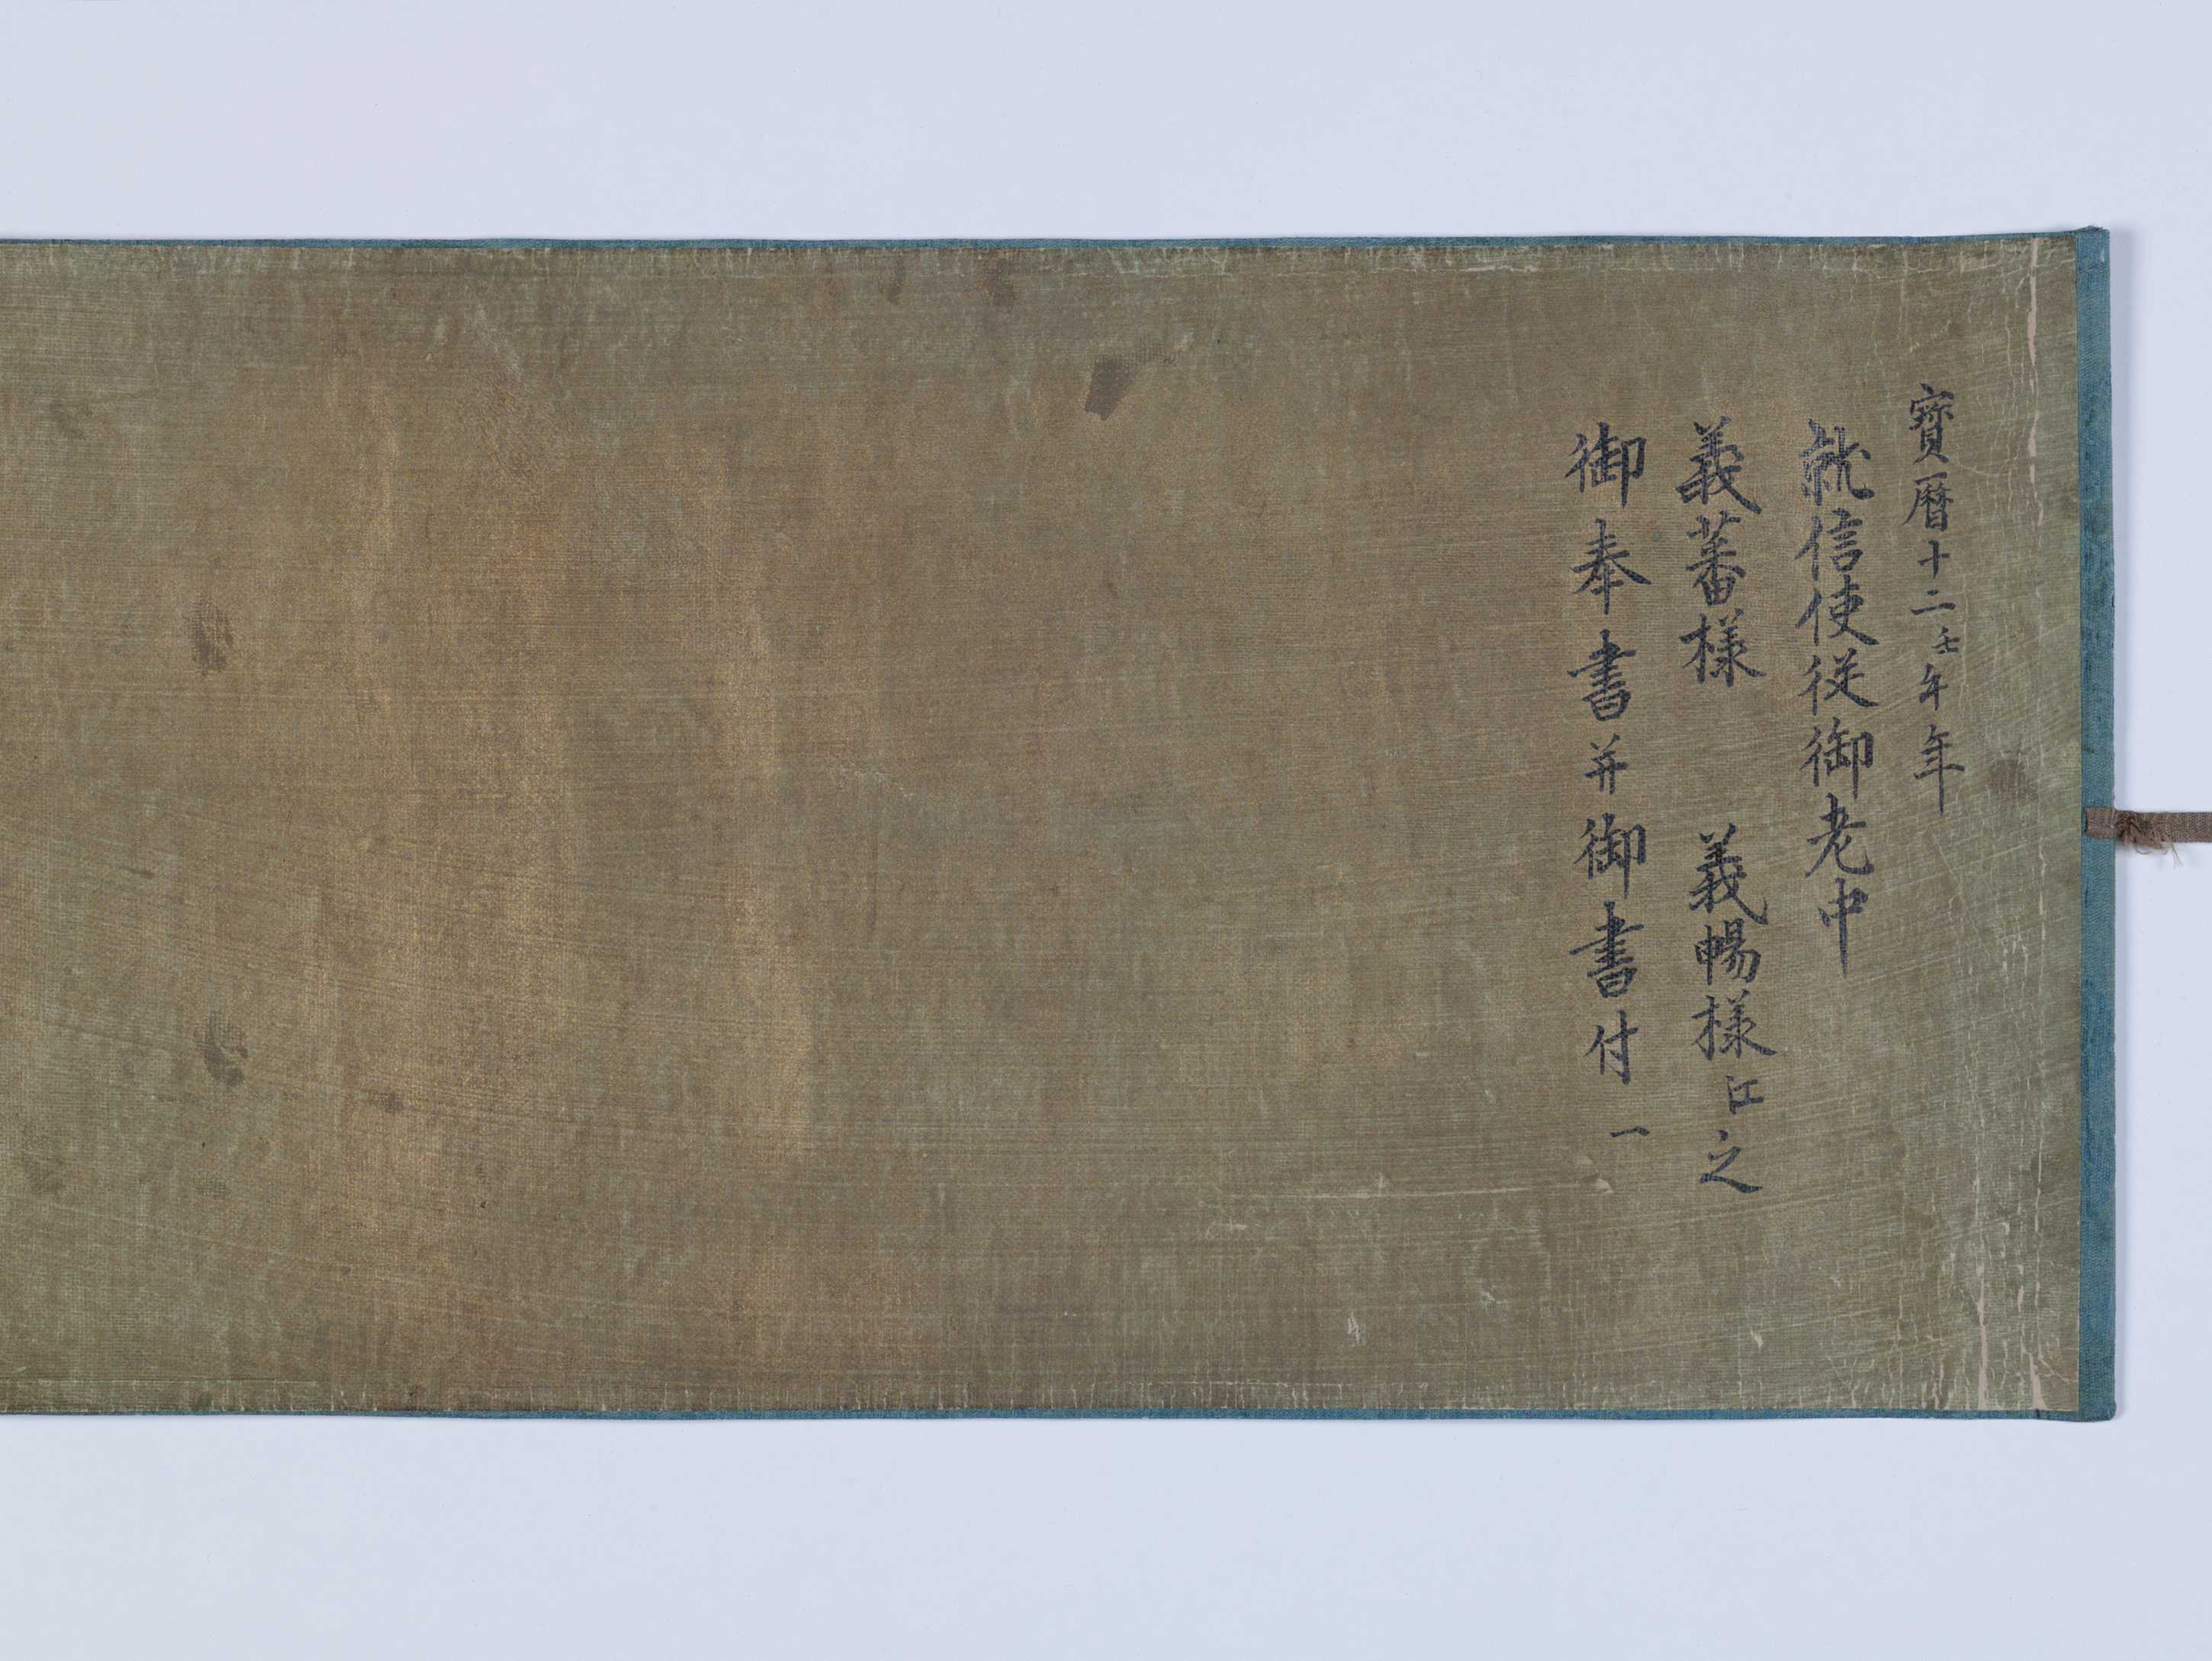 寳暦十二壬午年
就信使従御老中
義蕃様　義暢様江之
御奉書并御書付　一